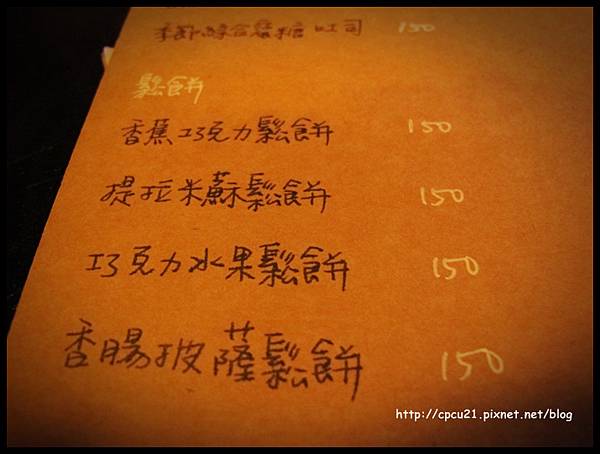 季節綜合蜜糖吐司 150
鬆餅
香蕉巧克力鬆餅 150
提拉米蘇鬆餅 150
巧克力水果鬆餅 150
香腸披薩鬆餅 150
http://cpcu21.pixnet.net/blog